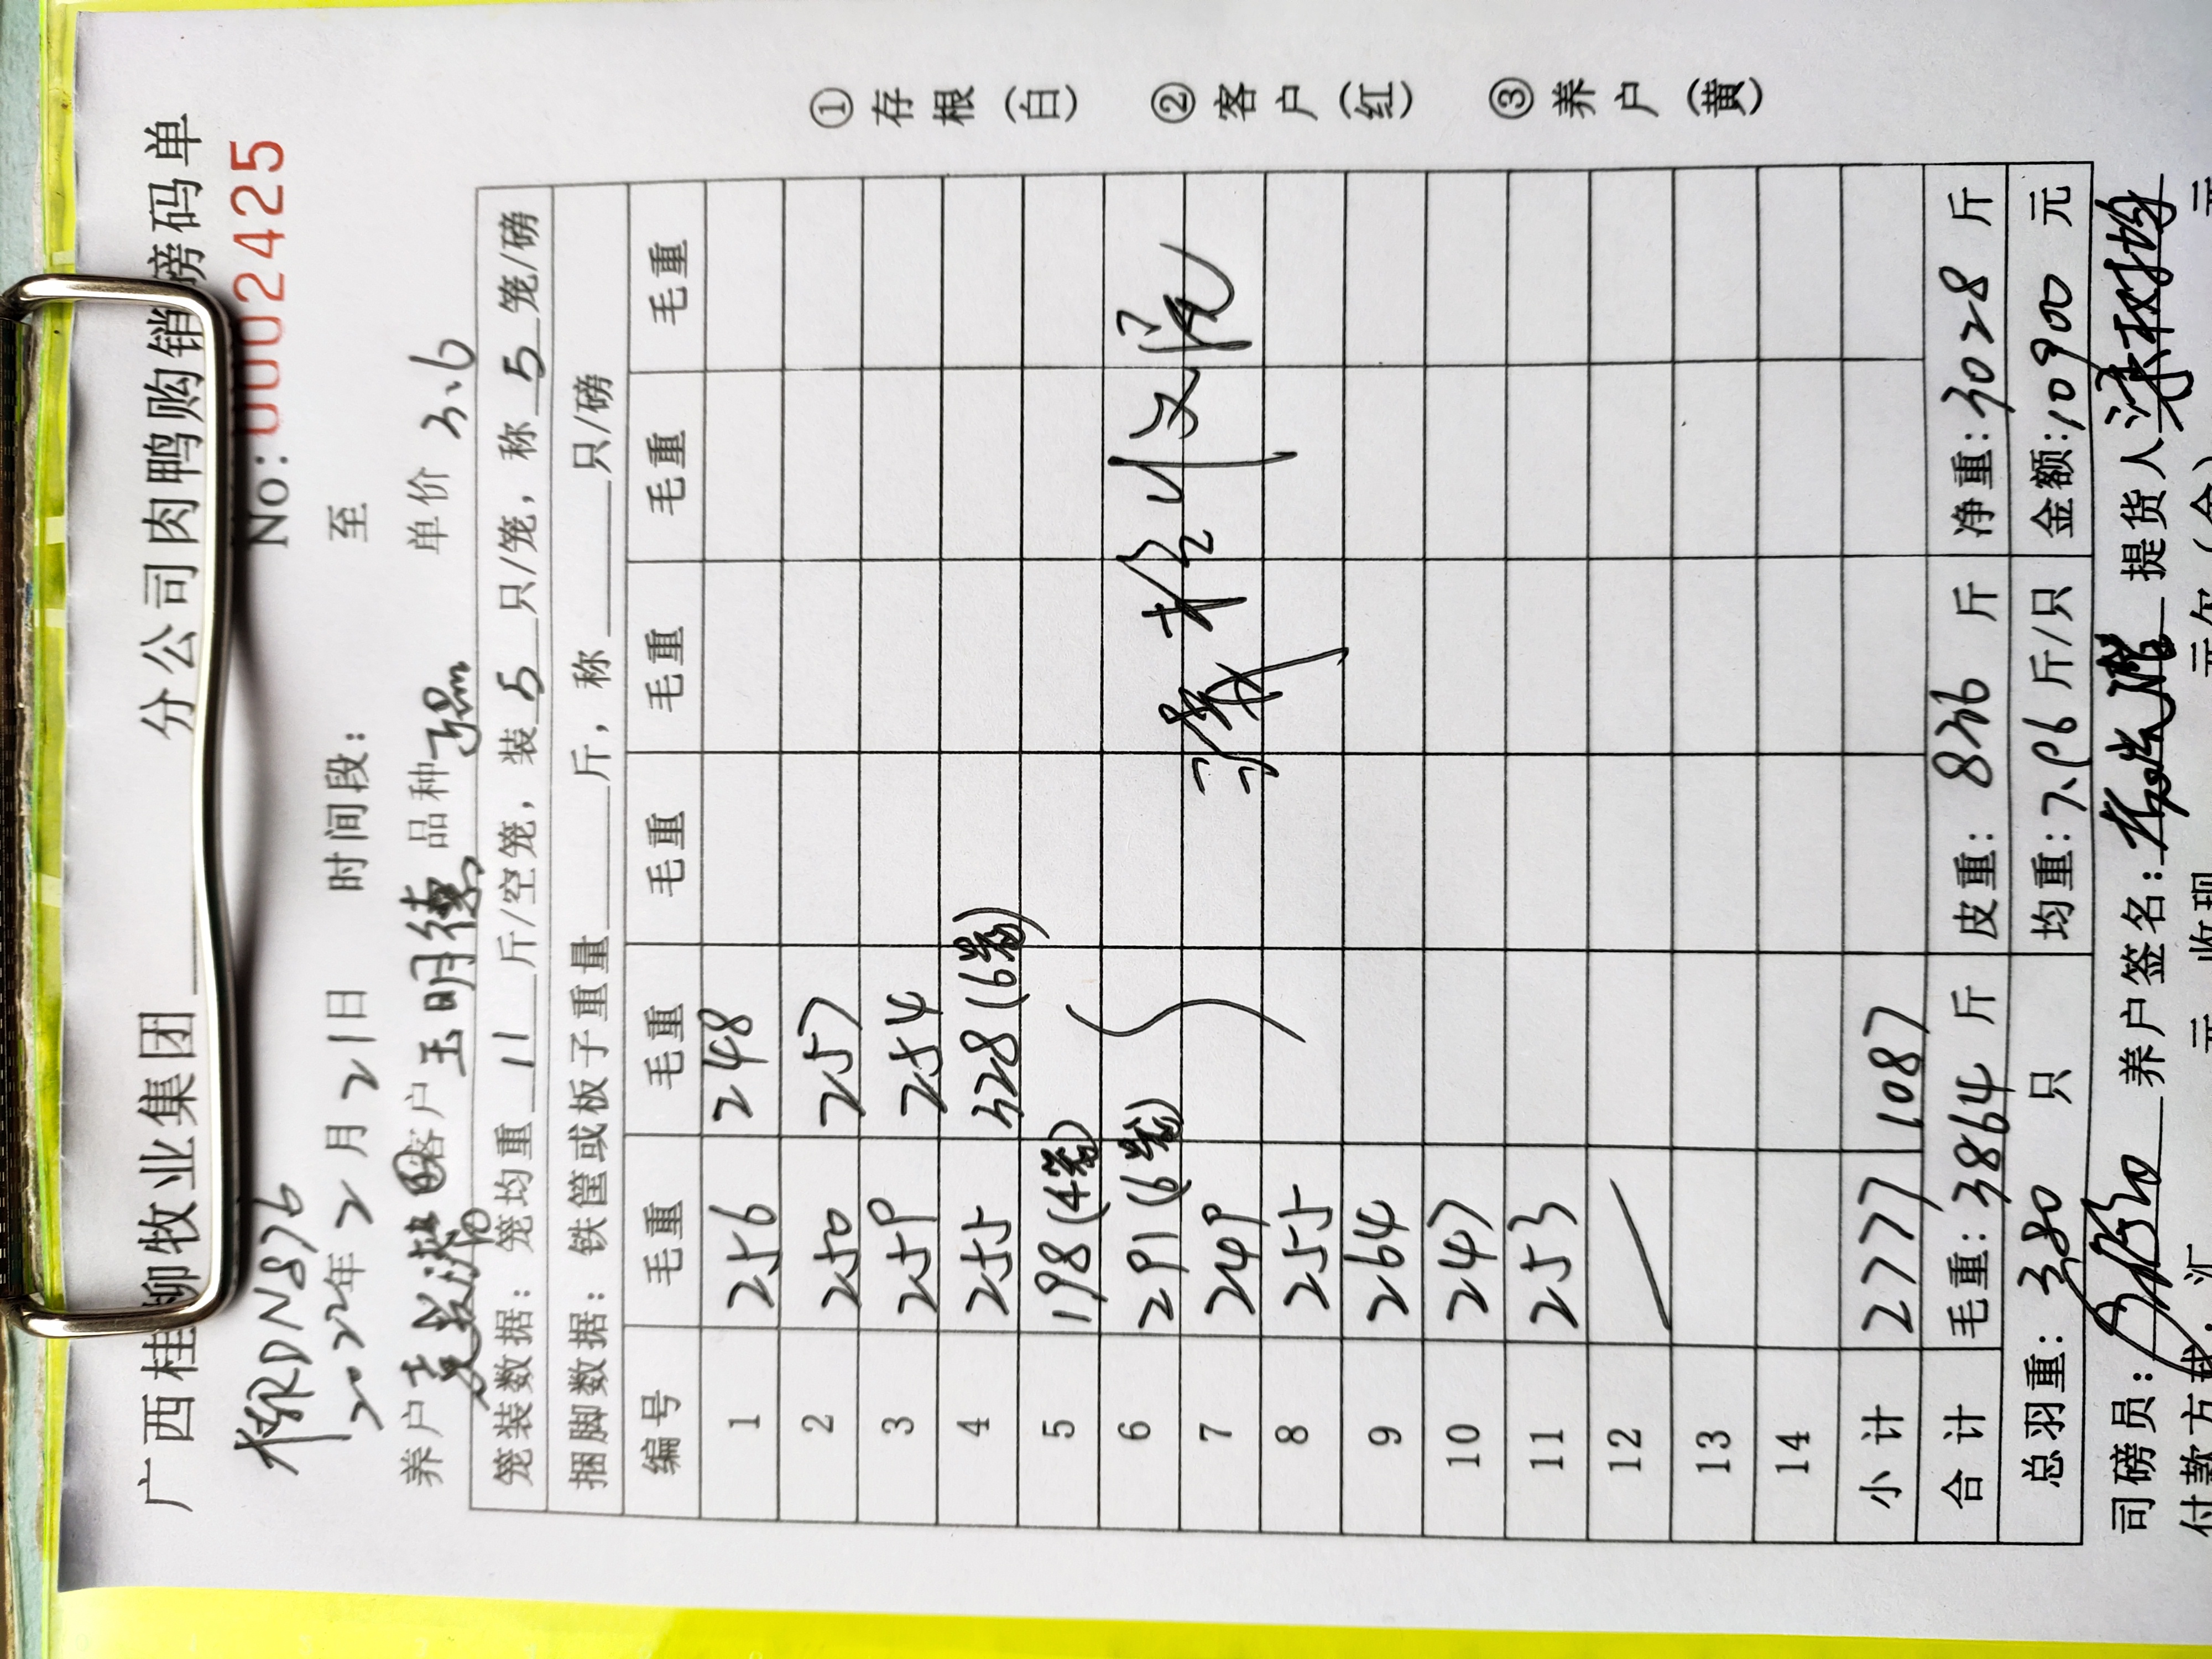 广西桂柳牧业集团 分公司肉鸭购销磅码单
DN876 No:0002425
2022年2月21日 时间段: 至
养户 客户 玉明德 品种 单价 3.6
笼装数据: 笼均重 11 斤/空笼, 装 5 只/笼, 称 5 笼/磅
捆脚数据: 铁筐或板子重量 斤, 称 只/磅
编号 毛重 毛重 毛重 毛重 毛重 毛重
1 256 248
2 250 257
3 259 254
4 255 328(6笼)
5 198(4笼)
6 291(6笼)
7 249
8 255
9 264
10 247
11 253
12
13
14
小计 2777 1087
合计 毛重: 3864 斤 皮重: 836 斤 净重: 3028 斤
总羽重: 380 只 均重: 7.96 斤/只 金额: 10900 元
司磅员: 养户签名: 提货人
付款方式: 汇 元 收现 元欠(余) 元
①存根(白) ②客户(红) ③养户(黄)